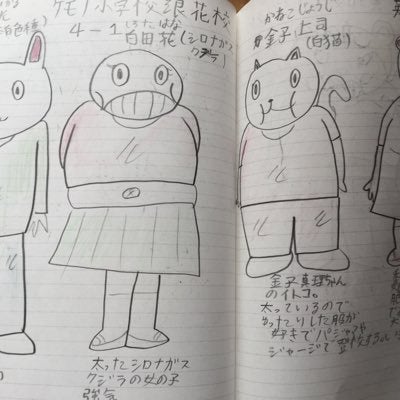 ケモノ小学校銀花校
4-1 白田花(シロナガス
しろたはな
クジラ)
太ったシロナガス
クジラの女の子
強気
かねこじょうし
金子上司
(白猫)
金子真理ちゃん
のイトコ。
太っているので
ゆったりした服が
好きでパジャマや
ジャージで登校する